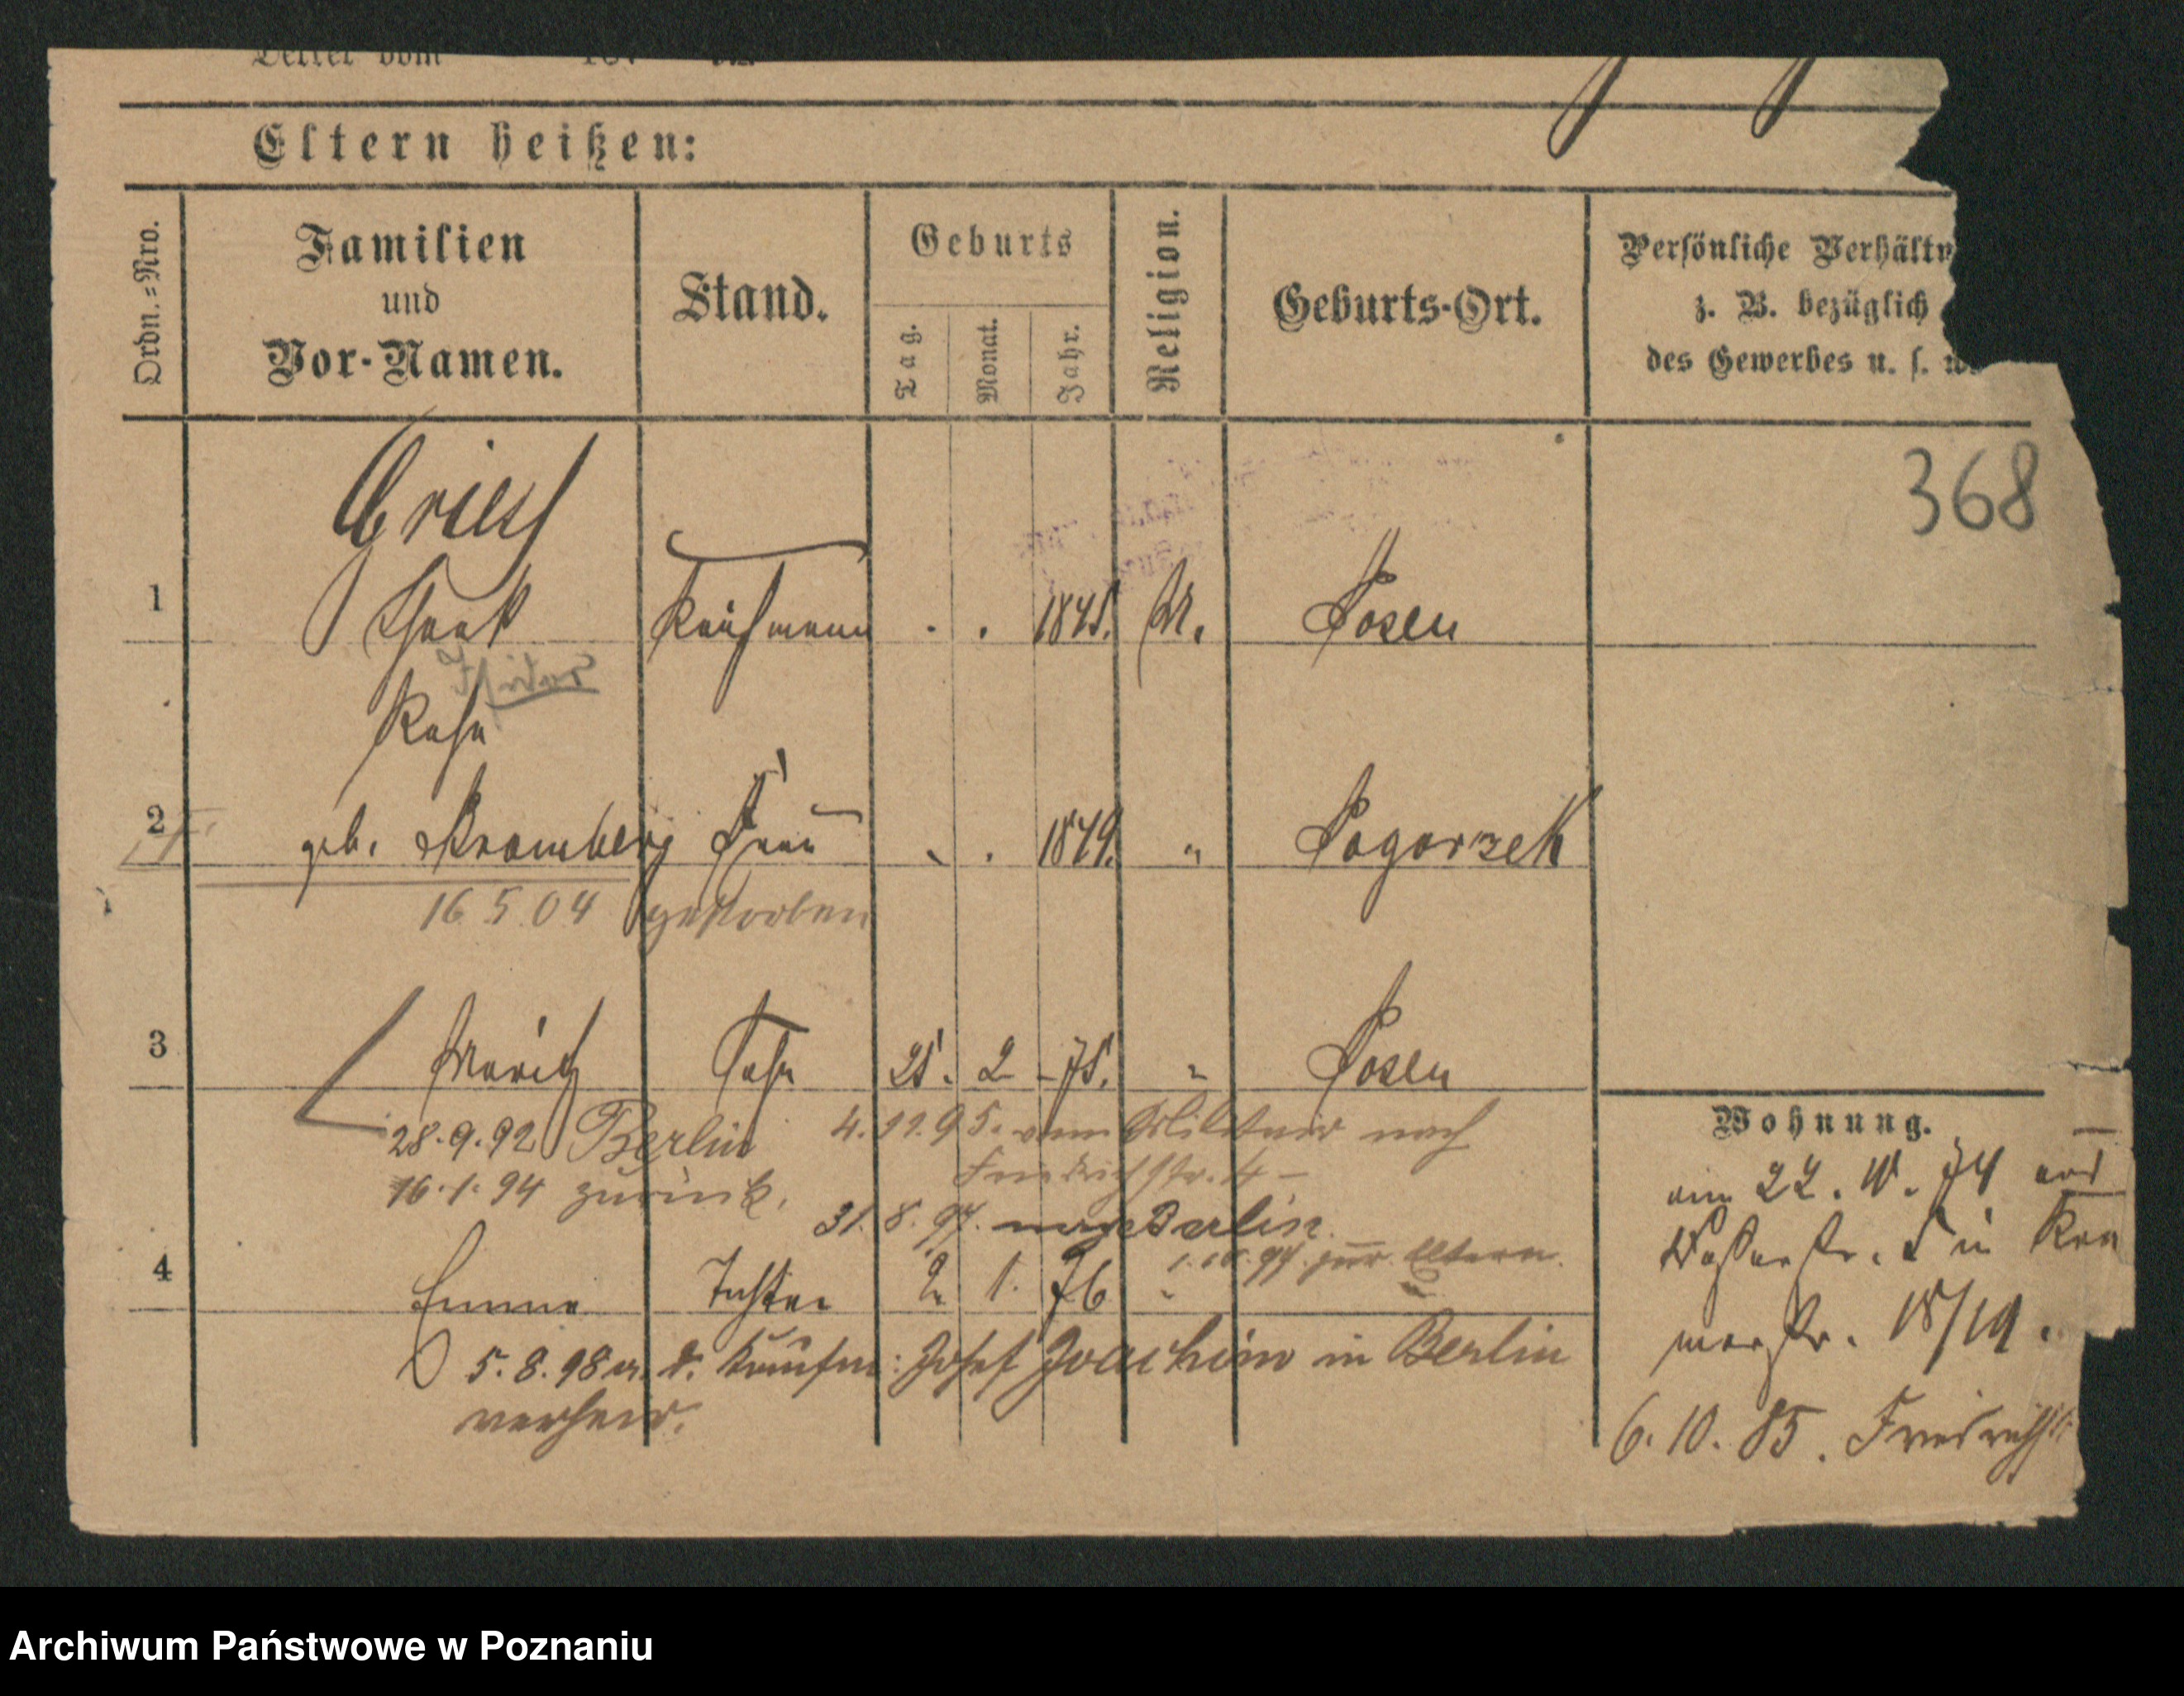 Eltern heißen:
Ordn.=Nro.
Familien
und
Vor-Namen.
Stand.
Geburts
Tag.
Monat.
Jahr.
Religion.
Geburts-Ort.
Persönliche Verhältn
z. B. bezüglich
des Gewerbes u. s. w.
368
1 Kaufmann . . 1845. M. Posen
Isidor
2 geb. Bromberg Frau . . 1849. " Pogorzell
16.5.04 gestorben
3 Moritz Sohn 25. 2 -75. " Posen
28.9.92 Berlin 4.11.95. vom Militair nach
Friedrichstr. 4 -
16.1.94 zurück.
31.8.97. nach Berlin.
1.10.97 zur. Eltern.
4 Emma Tochter 2. 1. 76 "
5.8.98 m. d. Kaufm: Josef Joachim in Berlin
verheir.
Wohnung.
am 22. 74
in
18/19.
6.10.85. Friedrichst
Archiwum Państwowe w Poznaniu